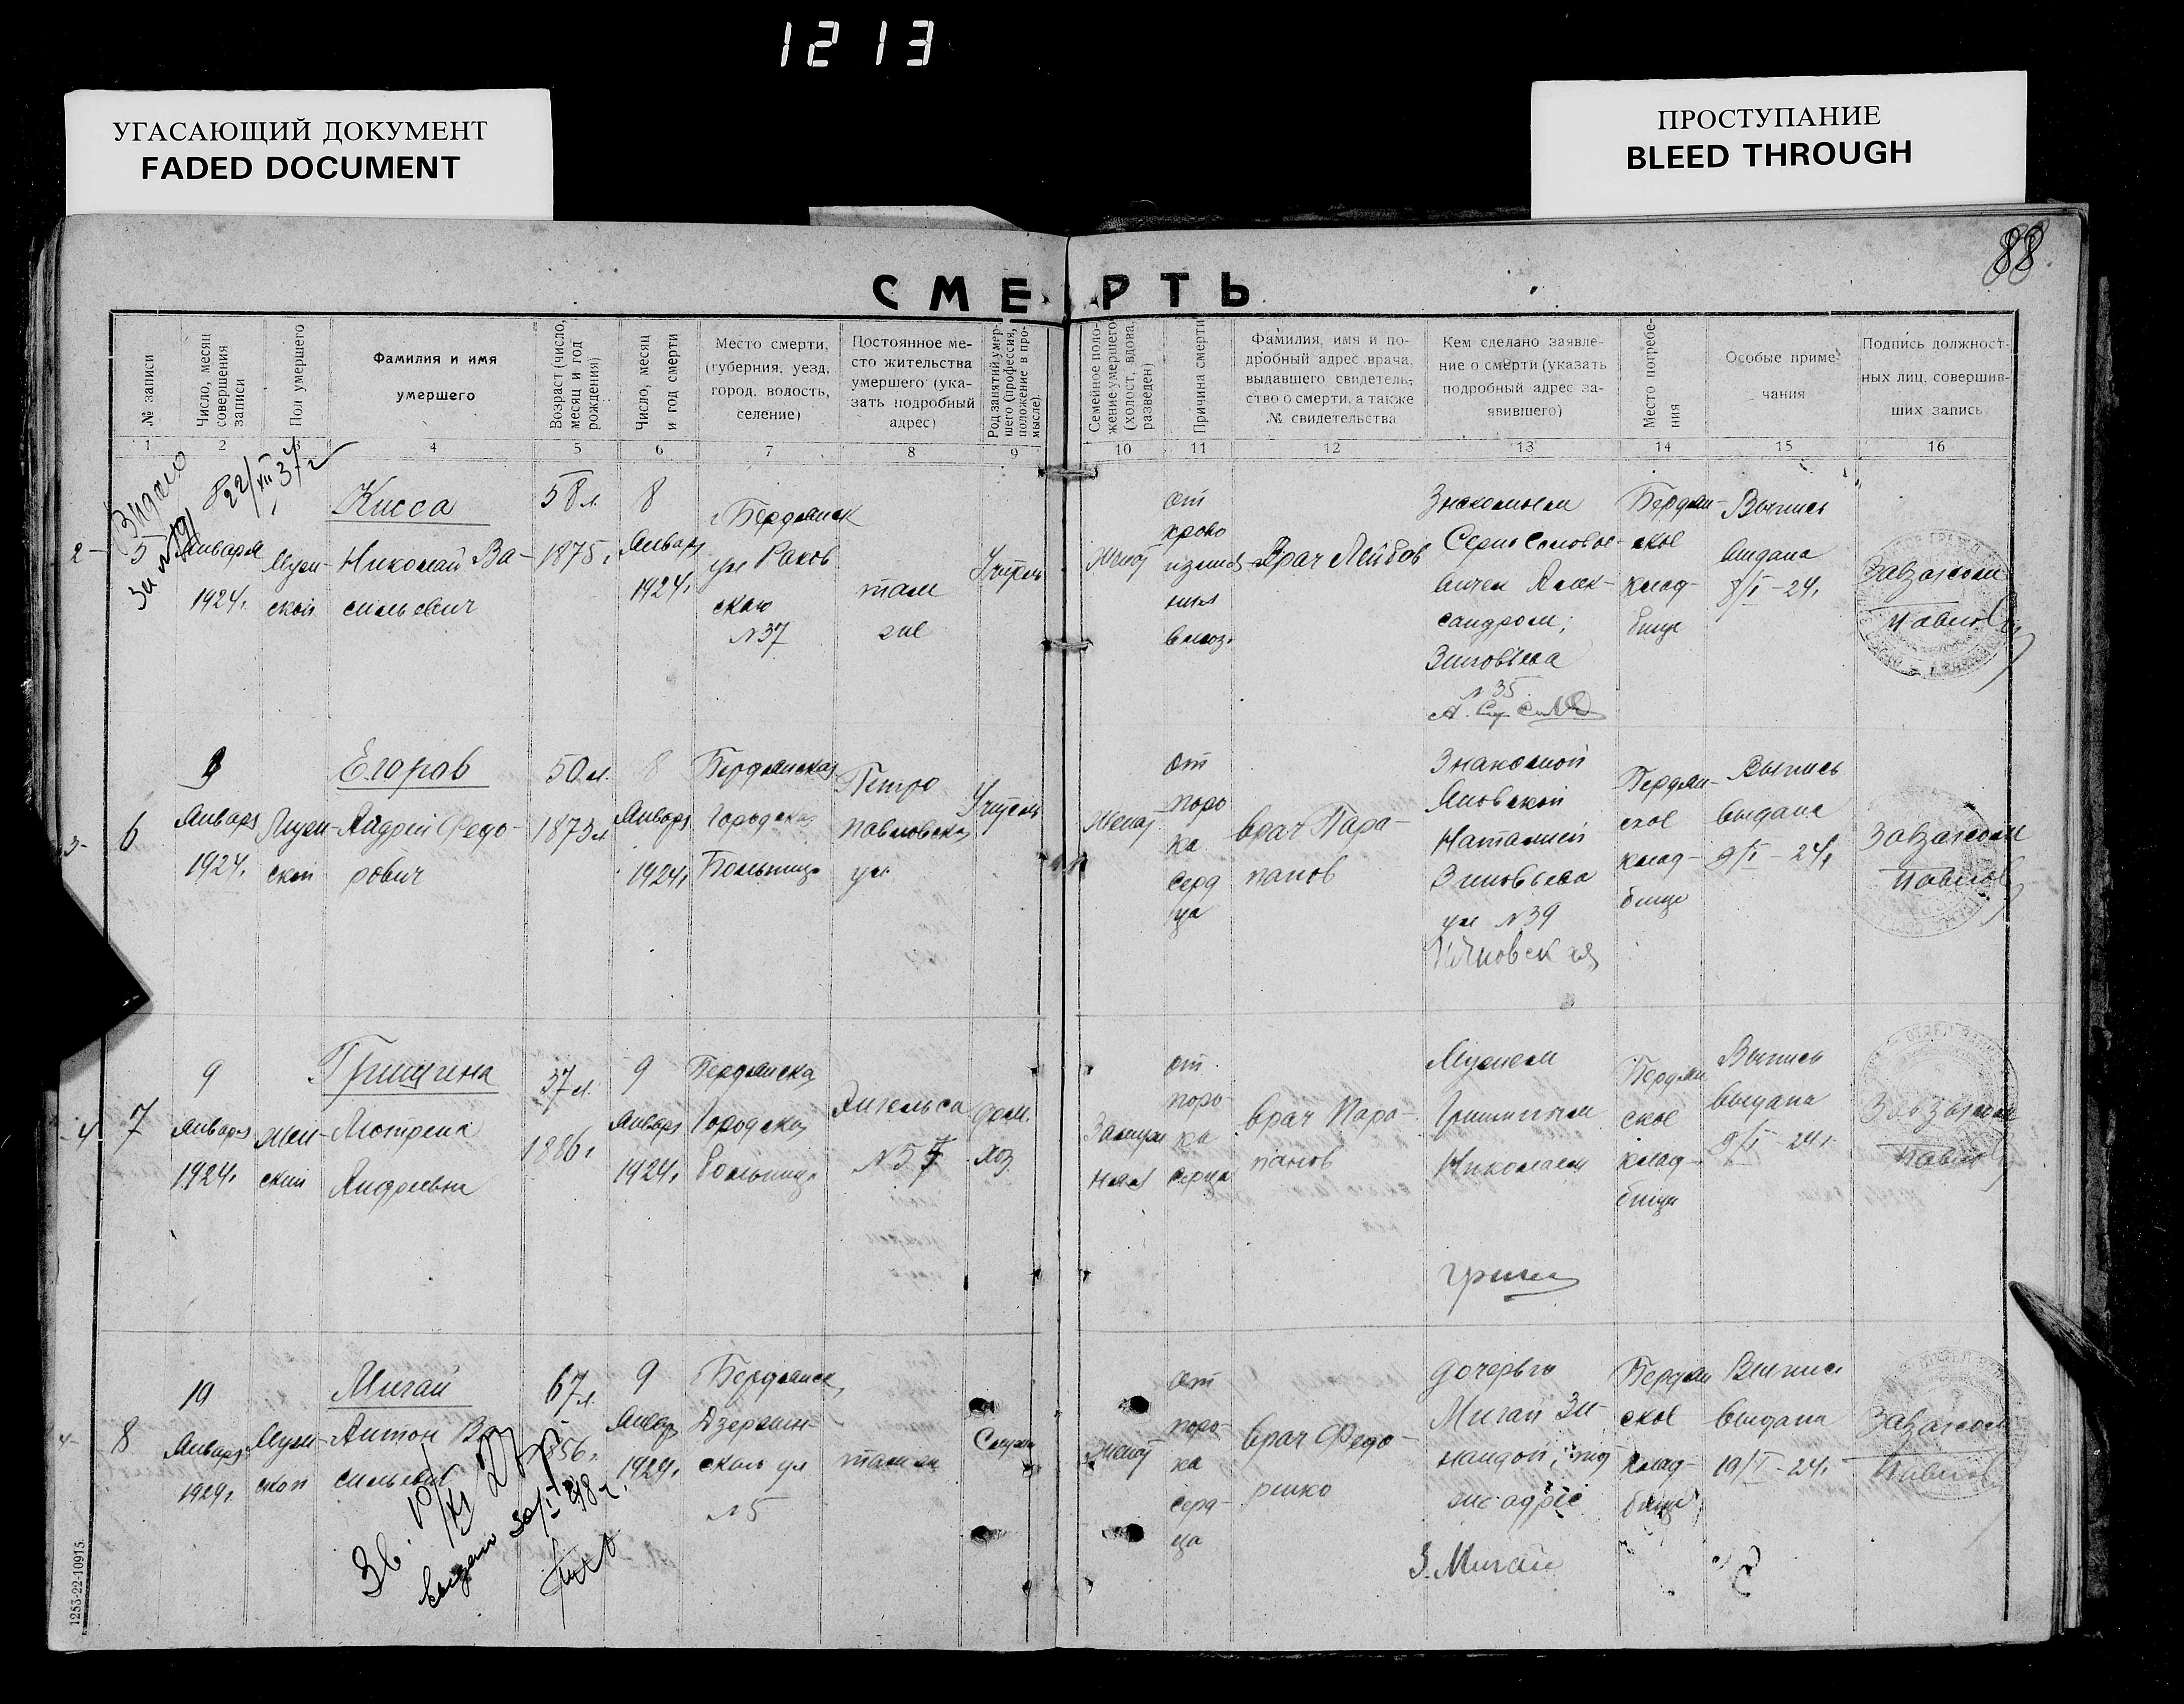 1213
УГАСАЮЩИЙ ДОКУМЕНТ
FADED DOCUMENT
ПРОСТУПАНИЕ
BLEED THROUGH
88
СМЕРТЬ
№ записи
Число, месяц совершения записи
Пол умершего
Фамилия и имя
умершего
Возраст (число, месяц и год рождения)
Число, месяц и год смерти
Место смерти,
(губерния, уезд,
город, волость,
селение)
Постоянное ме-
сто жительства
умершего (ука-
зать подробный
адрес)
Род занятий умер-
шего (профессия,
положение в про-
мысле).
Семейное поло-
жение умершего
(холост, вдова,
разведен)
Причина смерти
Фамилия, имя и по-
дробный адрес врача,
выдавшего свидетель-
ство о смерти, а также
№ свидетельства
Кем сделано заявле-
ние о смерти (указать
подробный адрес за-
явившего)
Место погребе-
ния
Особые приме-
чания
Подпись должност-
ных лиц, совершив-
ших запись
1 2 3 4 5 6 7 8 9 10 11 12 13 14 15 16
22/XII 37 г
2-
5
8
Января
1924г.
Муж-
ской
Кисса
Николай Ва-
сильевич
58 л.
1875г.
8
Январ
1924г.
г Бердянск
ул Раков
скаю
№37
там
же
Учитель
Женат
от
крово
излия
ния
в мозг
Врач Лейбов
Знакомым
Алек-
сандром;
Зиновьева
№ 35
Бердян-
ское
клад-
бище
Выпись
выдана
8/I - 24г
Завзагсом
Павлов
3-
6
9
Январ
1924г.
Муж-
ской
Егоров
Андрей Федо-
рович
50 л.
1873г.
8
Январ
1924г.
Бердянская
Городская
Больница
Петро
павловская
ул
Учитель
Женат
от
поро
ка
серд
ца
врач Пара-
панов
Знакомой
Яновской
Наталией
Зиновьева
ул №39
Яновская
Бердян-
ское
клад-
бище
Выпись
выдана
9/I - 24г
Завзагсом
Павлов
4
7
9
Январ
1924г.
Жен-
ский
Гришгена
Мотрена
Андреевна
37 л.
1886г
9
Январ
1924г.
Бердянская
Городская
Больница
Энгельса
№ 57
дом.
хоз
Замуж
няя
от
поро-
ка
сердца
врач Пара-
панов
Мужем
Николаем
Бердян
ское
клад-
бище
Выпись
выдана
9/I - 24г
Завзагсом
Павлов
8
19
Январ
1924г.
Муж-
ской
Мигай
Антон Ва
сильевич
67 л.
1856г
9
Январ
1924г.
Бердянск,
Дзержин-
ского ул
№5
там же
Женат
от
поро-
ка
серд-
ца
врач Федо-
ренко
дочерью
Мигай Зи-
наидой; тот
же адрес
З. Мигай
Бердян
ское
клад-
бище
Выпись
выдана
19/I - 24г
Завзагсом
Павлов
выдан 30/I 48 г.
1253-22-10915.